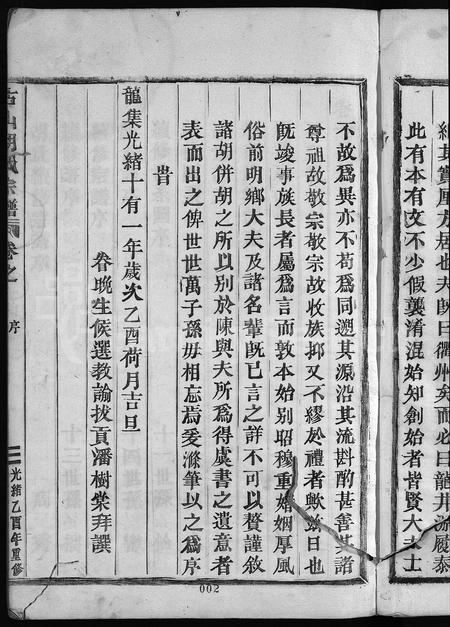 此有本有文不少假襲淆混始知創始者皆賢大夫士
不故爲異亦不苟爲同溯其源沿其流斟酌甚善其諸
尊祖故敬宗敬宗故收族抑又不繆於禮者歟竣日也
旣竣事族長者屬爲言而敦本始別昭穆重婚姻厚風
俗前明鄉大夫及諸名輩旣已言之詳不可以贅謹敘
諸胡併胡之所以別於陳與夫所爲得虞書之遺意者
表而出之俾世世萬子孫毋相忘焉爰滌筆以之爲序
旹
龍集光緒十有一年歲次乙酉荷月吉旦
眷晚生候選教諭拔貢潘樹棠拜譔
古山胡氏宗譜
卷之一
序
光緒乙酉年重修
002